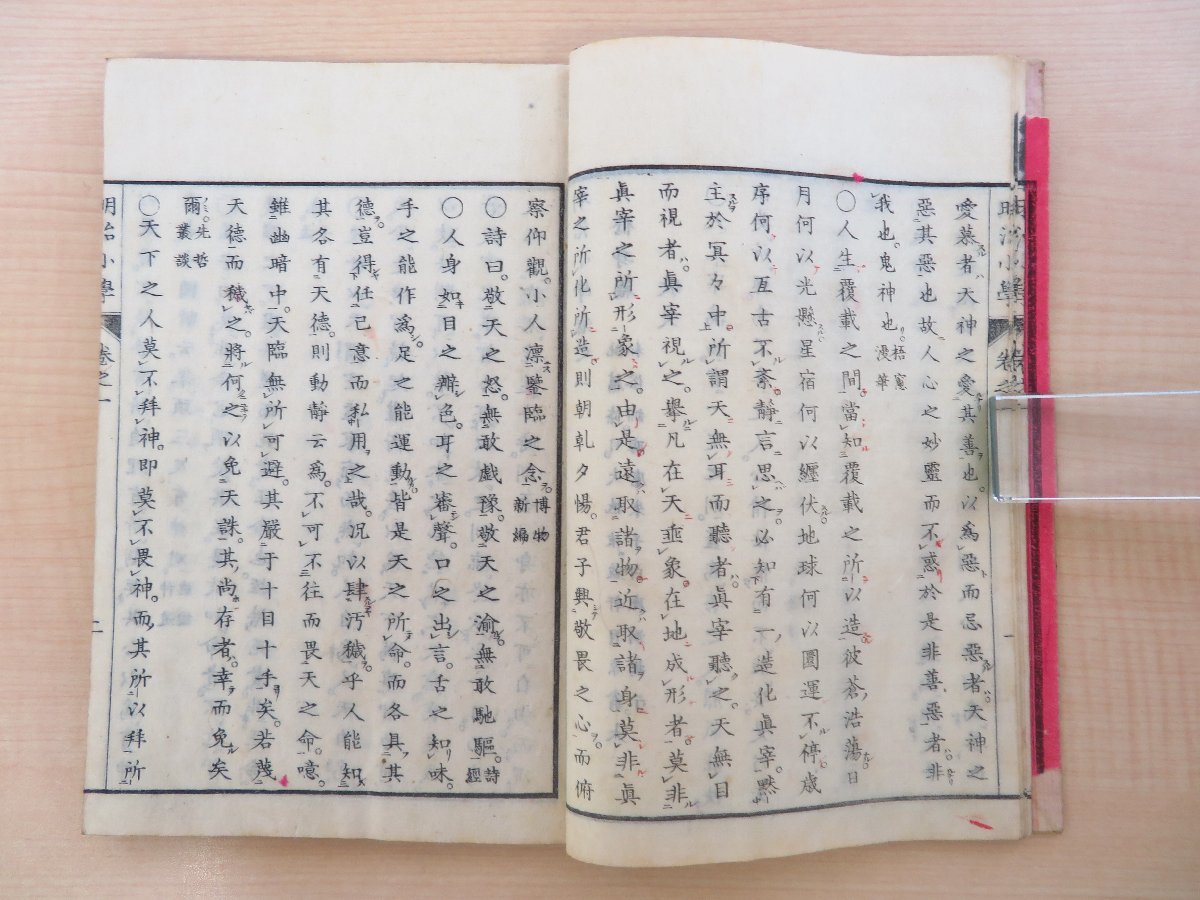 愛慕者天神之愛其善也。以為惡而忌惡者天神之
惡其惡也故人心之妙靈而不惑於是非善惡者非
我也。鬼神也。梧窻漫筆
〇人生覆載之間。當知覆載之所以造彼蒼浩蕩日
月何以光懸星宿何以纏伏地球何以圜運不停歲
序何以亙古不紊靜言思之必知有一造化眞宰。默
主於冥々中所謂天無耳而聽者眞宰聽之。天無目
而視者眞宰視之。擧凡在天乖象。在地成形者。莫非
眞宰之所形象之。由是遠取諸物。近取諸身莫非眞
宰之所化所造。則朝乹夕惕。君子興敬畏之心。而俯
察仰觀。小人凛鑒臨之念。博物新編
〇詩曰。敬天之怒。無敢戲豫。敬天之渝。無敢馳驅。詩經
〇人身如目之辨色。耳之審聲。口之出言。舌之知味。
手之能作為。足之能運動。皆是天之所命。而各具其
德。豈得任己意而私用之哉。况以肆汚穢乎人能知
其各有天德。則動靜云為。不可不往而畏天之命。噫。
雖幽暗中。天臨無所可避。其嚴于十目十手矣。若蔑
天德而穢之。將何之以免天誅。其尚存者。幸而免矣
爾。先哲叢談
〇天下之人莫不拜神。即莫不畏神。而其所以拜所
明治小學
卷之一
一
二